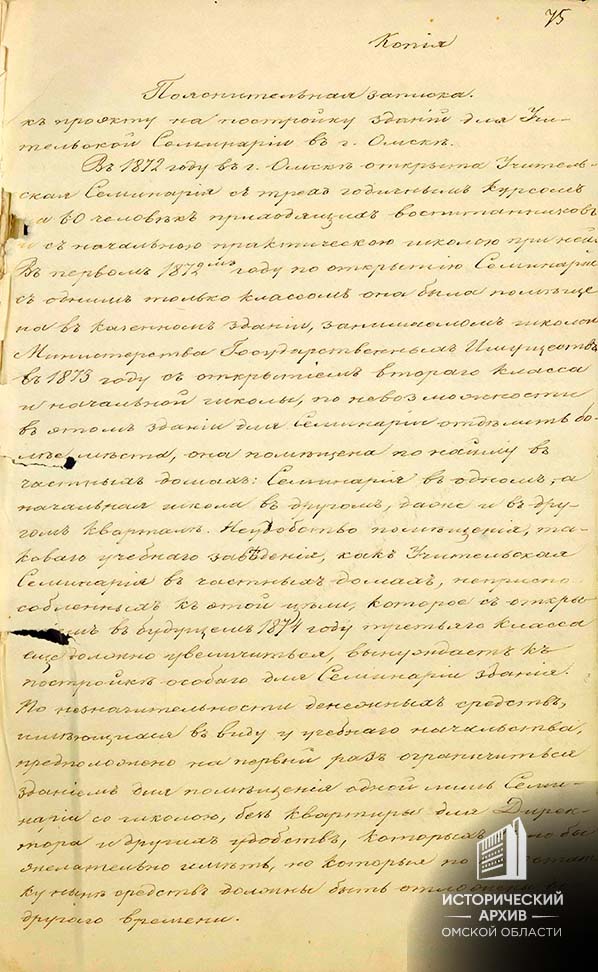 75
Копія
Пояснительная записка.
къ проэкту на постройку зданій для Учи-
тельской Семинаріи въ г. Омскѣ.
Въ 1872 году въ г. Омскѣ открыта Учитель-
ская Семинарія съ трехъ годичнымъ курсомъ
на 60 человѣкъ приходящихъ воспитанниковъ
и съ начальною практическою школою при ней.
Въ первомъ 1872мъ году по открытію Семинаріи
съ однимъ только классомъ она была помѣще
на въ казенномъ зданіи, занимаемомъ школою
Министерства Государственныхъ Имуществъ
въ 1873 году съ открытіемъ втораго класса
и начальной школы, по невозможности
въ этомъ зданіи для Семинаріи отдѣлить бо-
лѣе мѣста, она помѣщена по найму въ
частныхъ домахъ: Семинарія въ одномъ, а
начальная школа въ другомъ, даже и въ дру-
гомъ кварталѣ. Неудобство помѣщенія, та-
коваго учебнаго заведенія, какъ Учительская
Семинарія въ частныхъ домахъ, неприспо-
собленныхъ къ этой цѣли, которое съ откры-
емъ въ будущемъ 1874 году третьяго класса
еще должно увеличиться, вынуждаетъ къ
постройкѣ особаго для Семинаріи зданія.
По незначительности денежныхъ средствъ,
имѣющихся въ виду у учебнаго начальства,
предположено на первый разъ ограничиться
зданіемъ для помѣщенія одной лишь Семи-
наріи со школою, безъ квартиры для Дирек-
тора и другихъ удобствъ, которыхъ бы
желательно имѣть, но которыя по
ку нынѣ средствъ должны быть отложены
другаго времени.
ИСТОРИЧЕСКИЙ
АРХИВ
ОМСКОЙ ОБЛАСТИ